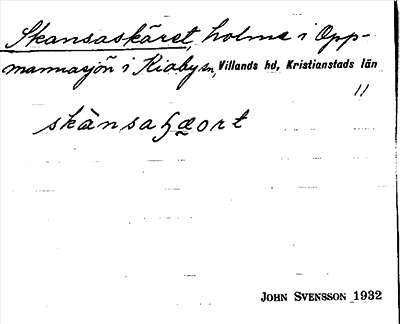 Skansaskäret, holme i Opp-
mannasjön i Kiaby sn, Villands hd, Kristianstads län
"
skànsaʃæort
JOHN SVENSSON 1932